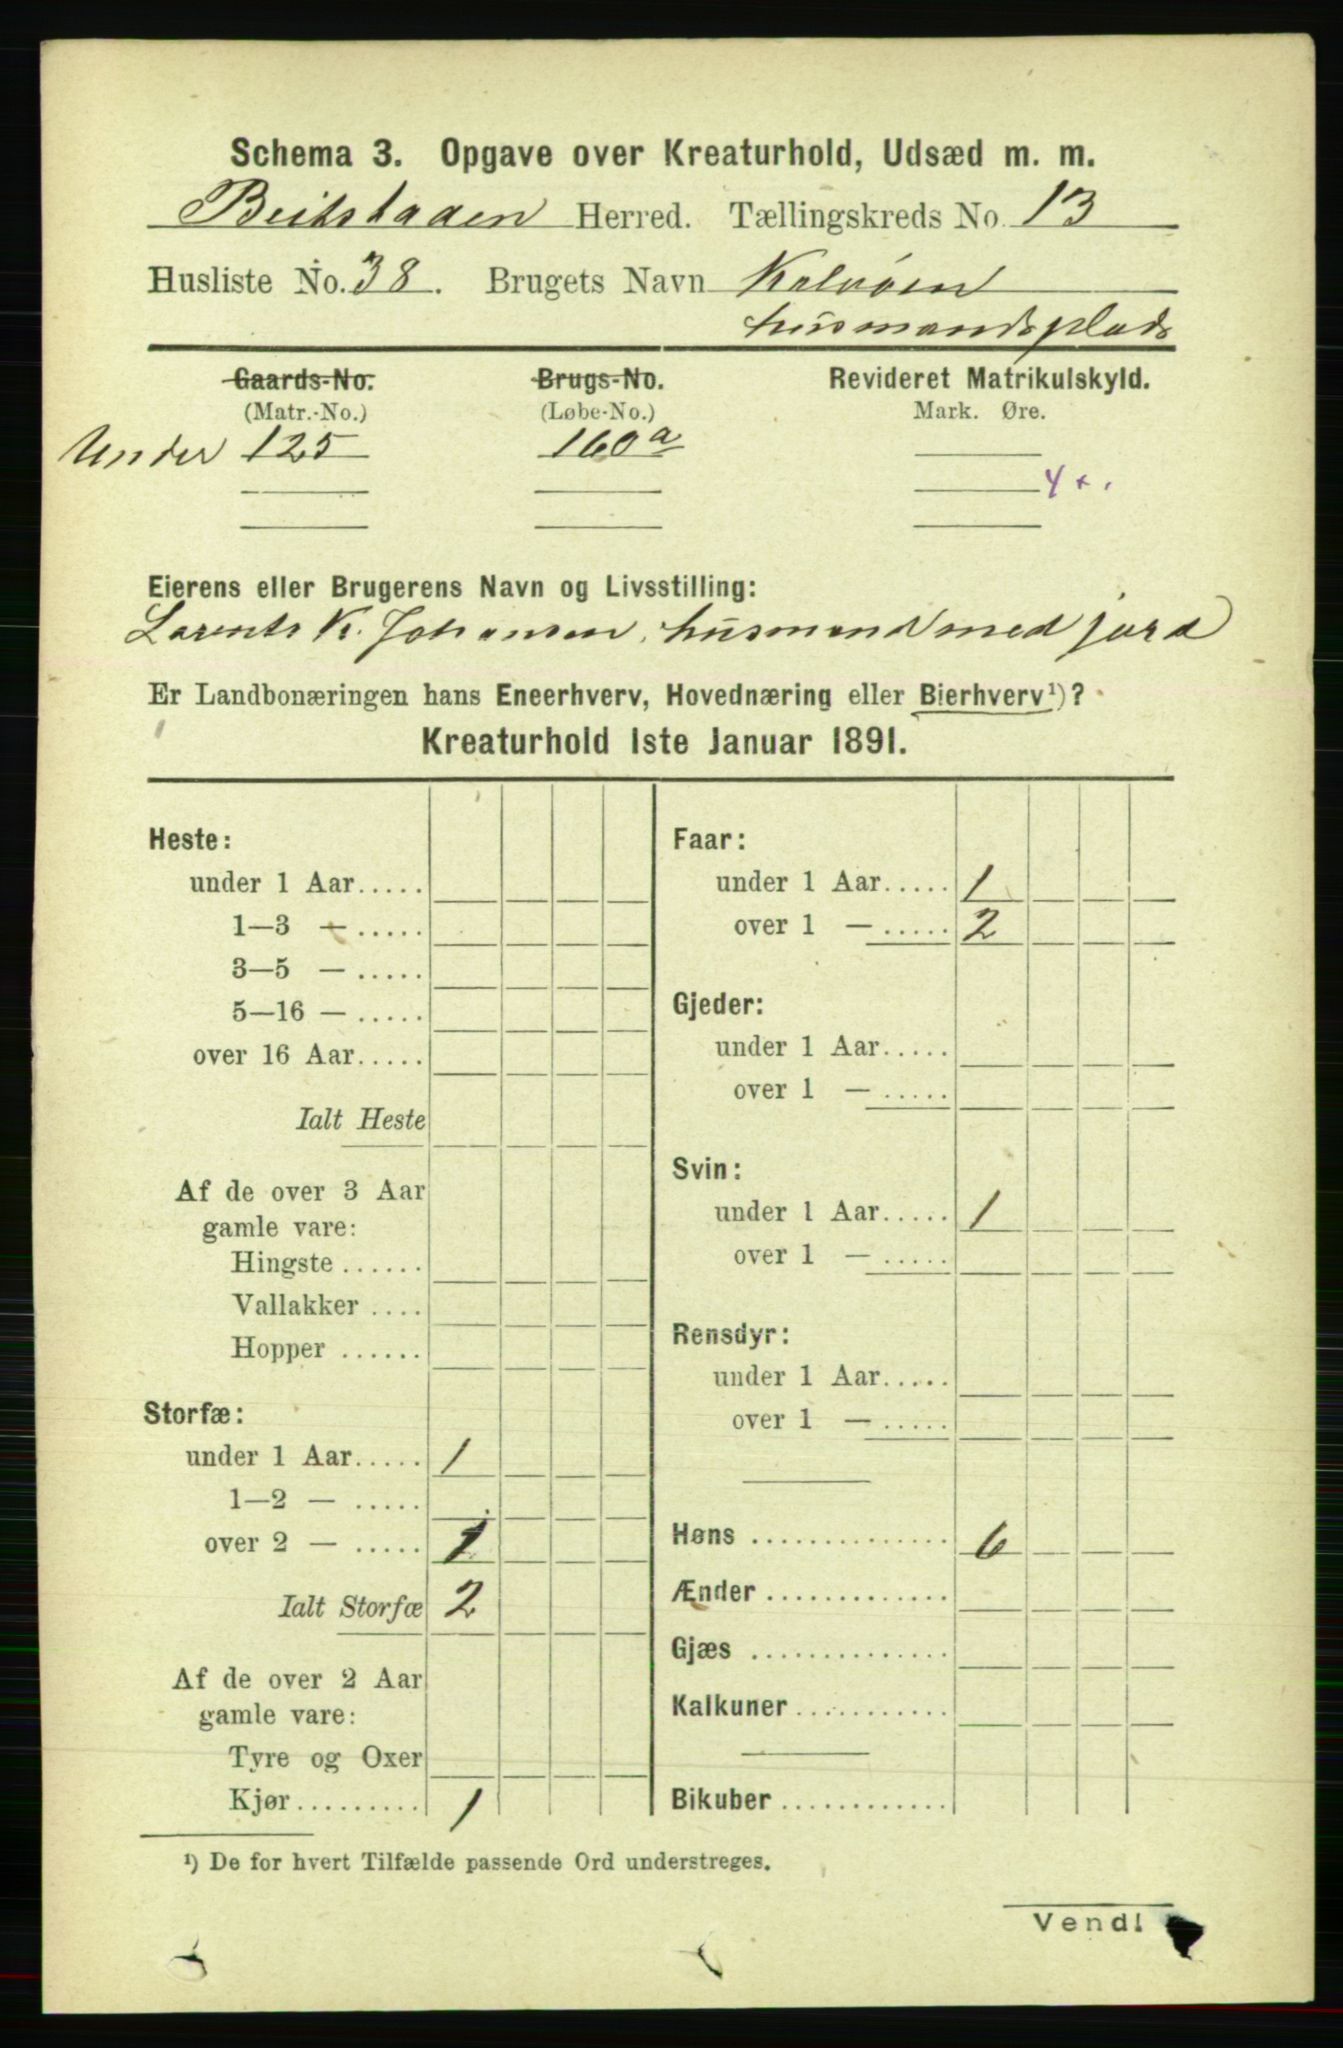 Schema 3. Opgave over Kreaturhold, Udsæd m. m.
Beitstaden Herred. Tællingskreds No. 13
Husliste No. 38. Brugets Navn Kalvøen
husmandsplads
Gaards-No. Brugs-No. Revideret Matrikulskyld.
(Matr.-No.) (Løbe-No.) Mark. Øre.
Under 125 160a
4
Eierens eller Brugerens Navn og Livsstilling:
Lorents K. Johansen, husmand med jord
Er Landbonæringen hans Eneerhverv, Hovednæring eller Bierhverv¹)?
Kreaturhold 1ste Januar 1891.
Heste:
under 1 Aar.....
1—3 — .....
3—5 — .....
5—16 — .....
over 16 Aar.....
Ialt Heste
Af de over 3 Aar
gamle vare:
Hingste ......
Vallakker ....
Hopper ......
Storfæ:
under 1 Aar..... 1
1—2 — .....
over 2 — ..... 1
Ialt Storfæ 2
Af de over 2 Aar
gamle vare:
Tyre og Oxer
Kjør......... 1
Faar:
under 1 Aar..... 1
over 1 — ..... 2
Gjeder:
under 1 Aar.....
over 1 — .....
Svin:
under 1 Aar..... 1
over 1 — .....
Rensdyr:
under 1 Aar.....
over 1 — .....
Høns .............. 6
Ænder .............
Gjæs ..............
Kalkuner ...........
Bikuber ............
¹) De for hvert Tilfælde passende Ord understreges.
Vend!